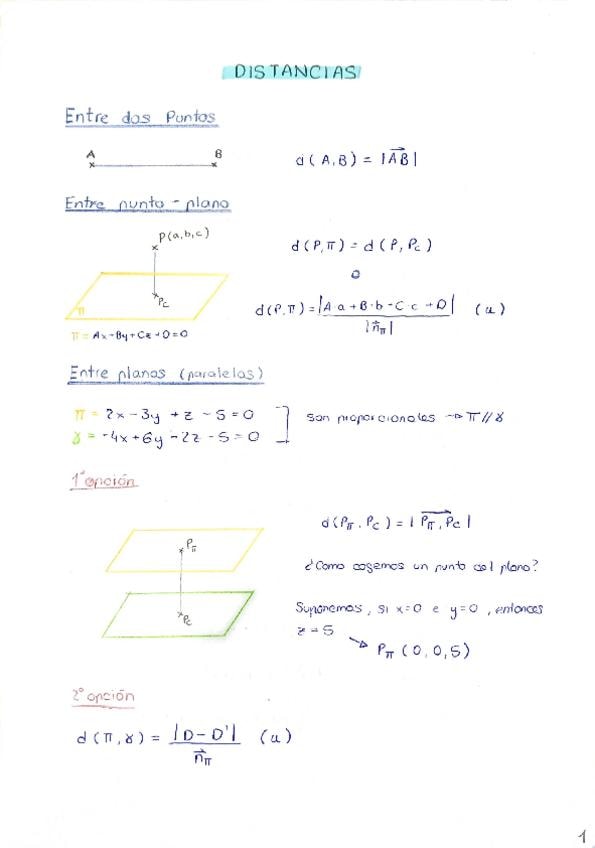 DISTANCIAS
Entre dos Puntos
A B
d(A,B) = |AB|
Entre punto - plano
P(a,b,c)
d(P,π) = d(P,Pc)
o
Pc
π
d(P,π) = |A·a+B·b+C·c+D| / |n⃗π| (u)
π = Ax+By+Cz+D=0
Entre planos (paralelos)
π = 2x-3y+z-5=0
γ = -4x+6y-2z-5=0
son proporcionales → π//γ
1ª opción
d(Pπ,Pc) = |Pπ,Pc|
Pπ
¿Como cogemos un punto del plano?
Suponemos, si x=0 e y=0, entonces
z=5
Pc
Pπ(0,0,5)
2º opción
d(π,γ) = |D-D'| / n⃗π (u)
1